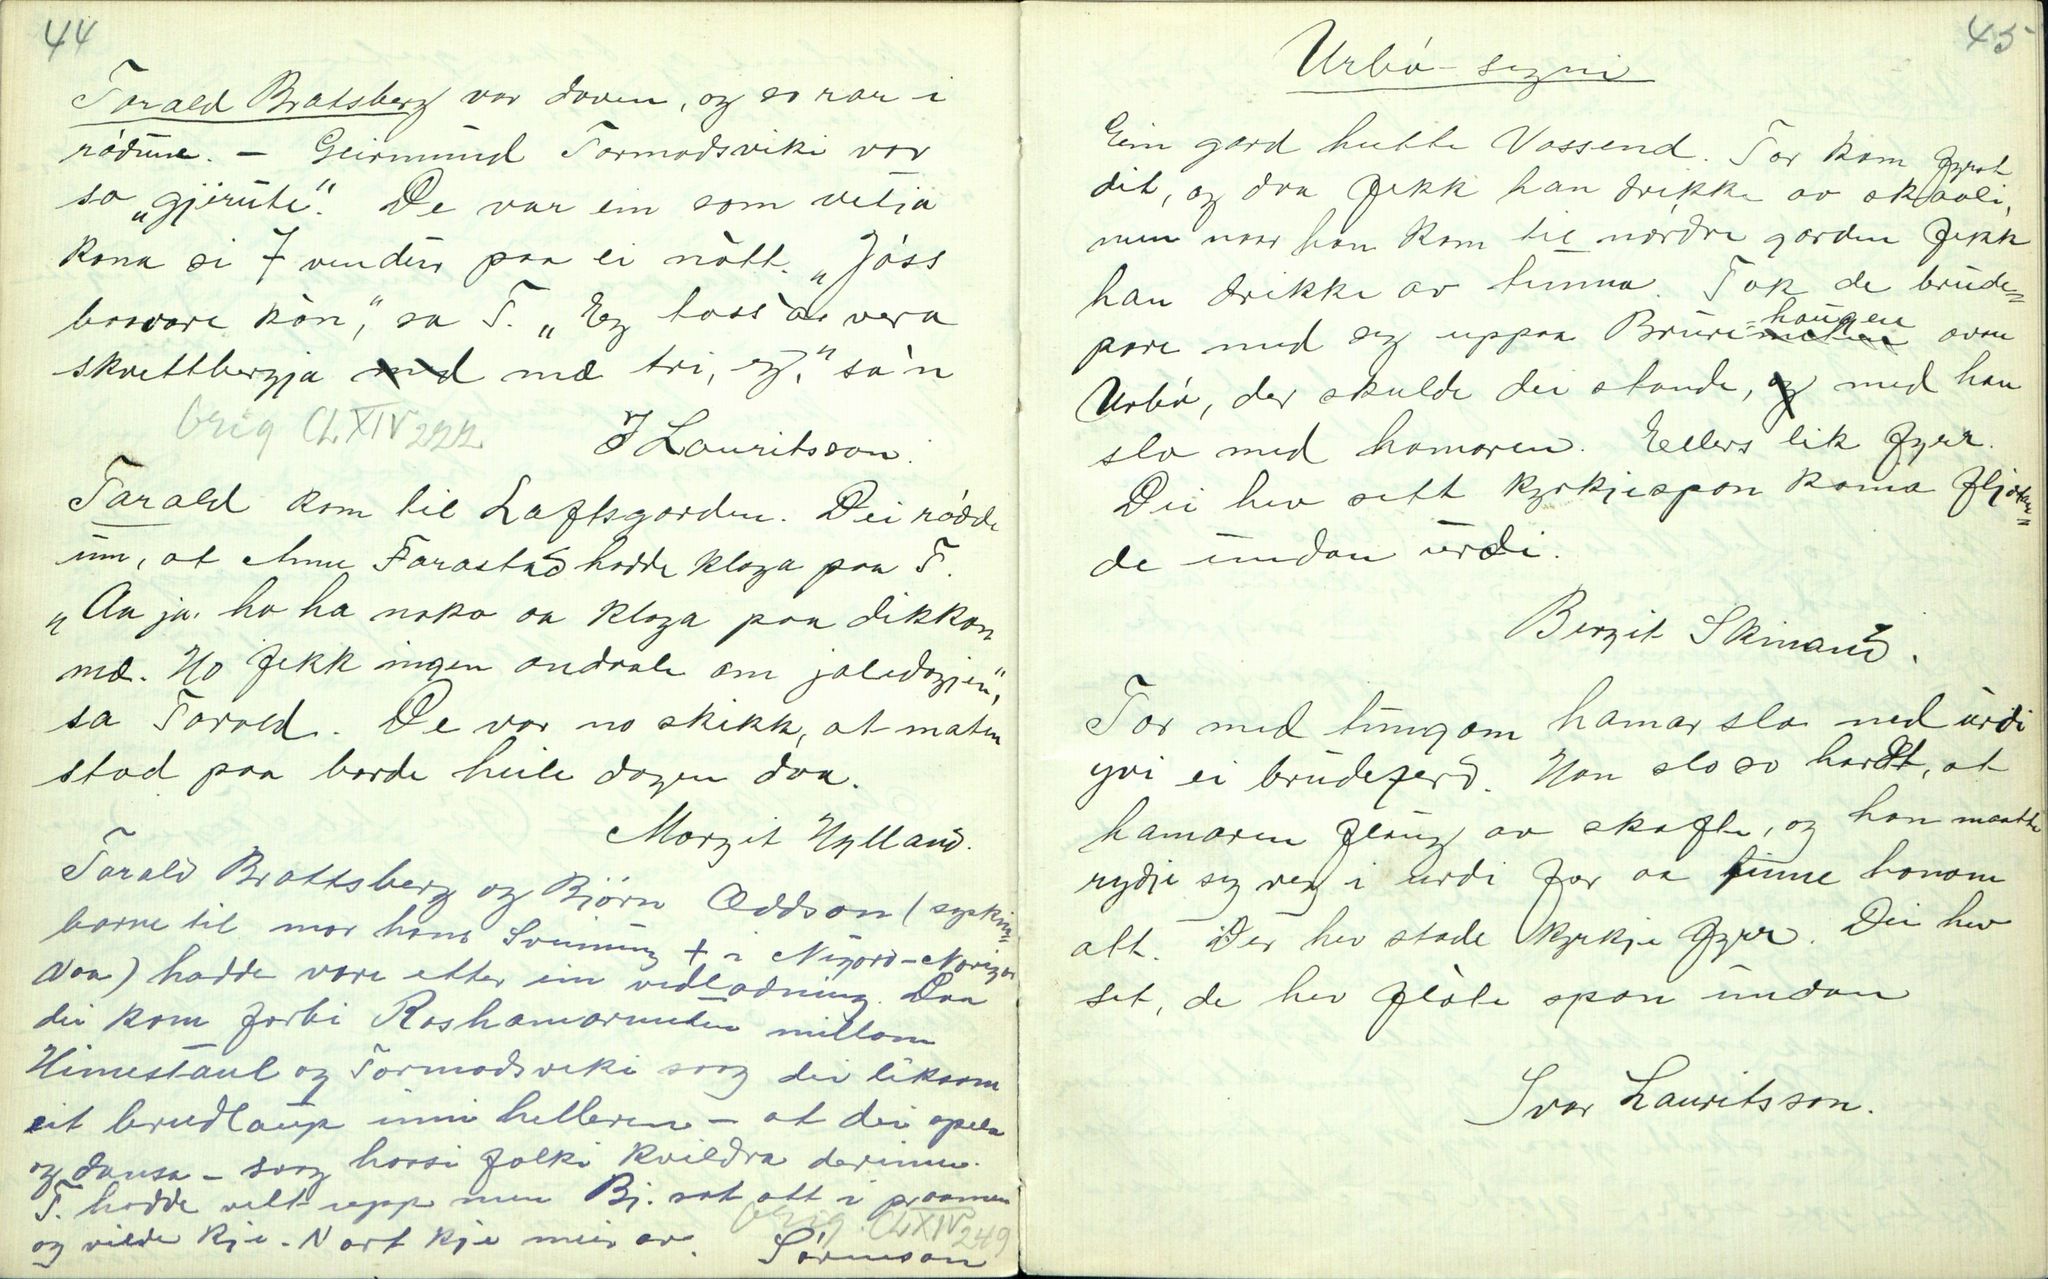 44
Tarald Bratsberg var doven, og so rar i
rödune. – Geirmund Tormodsviki var
so "gjerute". De var ein som vitja
kona si 7 vendur paa ei nòtt. "Jòss
bosvare kòn," sa T. "Eg toss'a vera
skvettbergja mæ tri, eg," sa'n
Orig CLXIV 222
J Lauritsson.
Tarald kom til Laftsgarden. Dei rödde
um, at Anne Farastad hadde klaga paa T.
"Aa ja, ho ha noko aa klaga paa dikkan
mæ. Ho fekk ingen andvale om joledagjen",
sa Tarald. De var no skikk, at maten
stod paa borde heile dagen daa.
Margit Hylland.
Tarald Brattsberg og Björn Oddson (syskin=
borne til mor hans Sveinung + i Nigard-Norigar
daa) hadde vore etter ein vedladning. Daa
dei kom forbi Roshamarnuten millom
Himestaul og Tormodsviki saag dei liksom
eit brudlaup inni helleren – at dei spela
og dansa – saag hossi folki kvildra derinne.
T. hadde vilt upp men Bj. sat att i praamen
og vilde kje. Nart kje meir av.
Orig. CLXIV 249
Sörmson
45
Urbö-segni
Ein gard heitte Vassend. Tor kom fyrst
dit, og daa fekk han drikke av skaali,
men naar han kom til nördre garden fekk
han drikke av tunna. Tok de brude=
pare med seg uppaa Brure=haugen ovan
Urbö, der skulde dei stande, med han
slo med hamaren. Ellers lik fyrr.
Dei hev sett kyrkjespon koma fljotan=
de undan urdi.
Bergit Skinand.
Tor med tungom hamar slo ned urdi
yvi ei brudeferd. Han slo so hardt, at
hamaren flaug av skafte, og han maatte
rydje seg veg i urdi for aa finne honom
att. Der hev stade kyrkje fyrr. Dei hev
set, de hev flòte spon undan
Ivar Lauritsson.